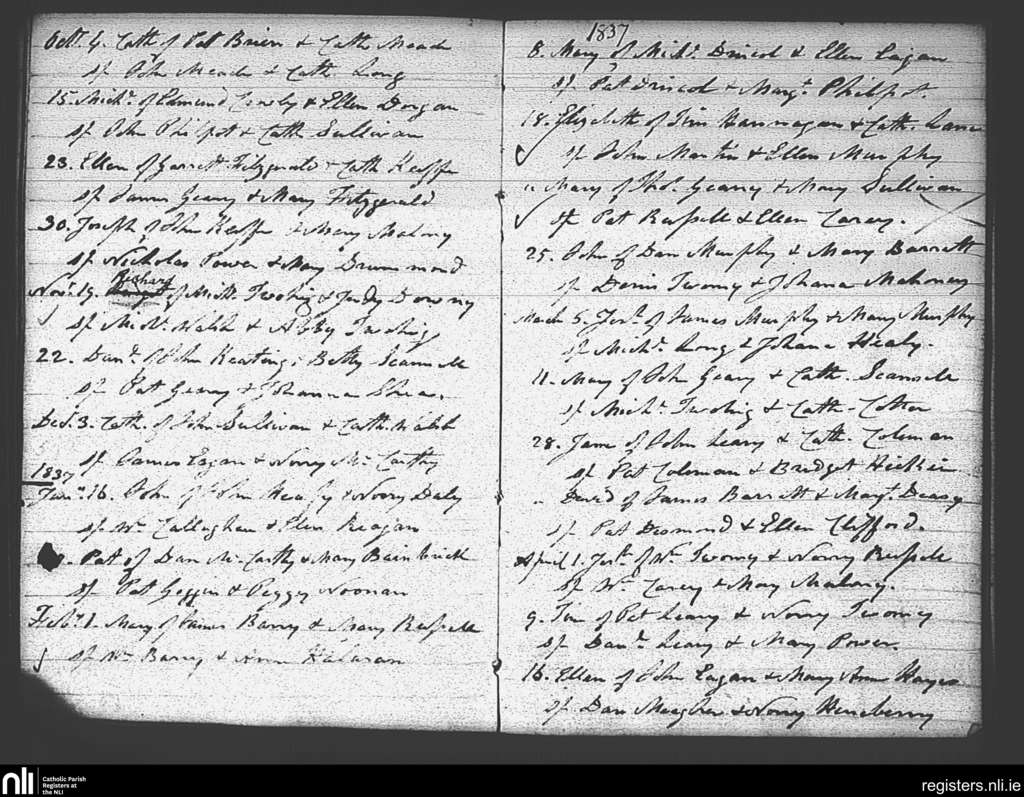 Octr. 4. Cath of Pat Brien & Cath Meade
sp John Meade & Cath Long
15. Michl. of Edmund & Ellen Dorgan
sp John Philpot & Cath Sullivan
23. Ellen of Garrett Fitzgerald & Cath Keeffe
sp James Geany & Mary Fitzgerald
30. Joseph of John Keeffe & Mary Malony
sp Nicholas Power & Mary Drummond
Richard
Novr. 19. of Michl. Twohig & Judy Downy
sp Michl. Walsh & Abby Twohig
22. Danl. of John Keating & Betty Scannell
sp Pat Geany & Johanna Shea.
Decr. 3. Cath. of John Sullivan & Cath. Walsh
sp James Eagan & Norry McCarthy
1837
Jany. 16. John of John Healy & Norry Daly
sp Wm. Callaghan & Ellen Reagan
Pat of Dan McCarthy & Mary Bainbrick
sp Pat Goggin & Peggy Noonan
Feby. 1. Mary of James Barry & Mary Russell
sp Wm Barry & Ann
1837
8. Mary of Michl. Driscol & Ellen Eagan
sp Pat Driscol & Margt. Philpot.
18. Elizabeth of Tim Hannagan & Cath. Lane
sp John Martin & Ellen Murphy
" Mary of Thos. Geany & Mary Sullivan
sp Pat Russell & Ellen Carey.
25. John of Dan Murphy & Mary Barrett
sp Denis Twomy & Johana Mahoney
March 5. Jerh. of James Murphy & Mary Murphy
sp Michl. Long & Johana Healy.
11. Mary of John Geany & Cath. Scannell
sp Michl. Twohig & Cath. Cotter
28. Jane of John Leary & Cath. Coleman
sp Pat Coleman & Bridget
" David of James Barrett & Margt. Deasy
sp Pat Desmond & Ellen Clifford.
April 1. Jerh. of Wm. Twomy & Norry Russell
sp Wm. Carey & Mary Malony.
9. Tim of Pat Leary & Norry Twomey
sp Danl. Leary & Mary Power.
16. Ellen of John Eagan & Mary Ann Hayes
sp Dan Meagher & Norry Heneberry
nli
Catholic Parish
Registers at
the NLI
registers.nli.ie